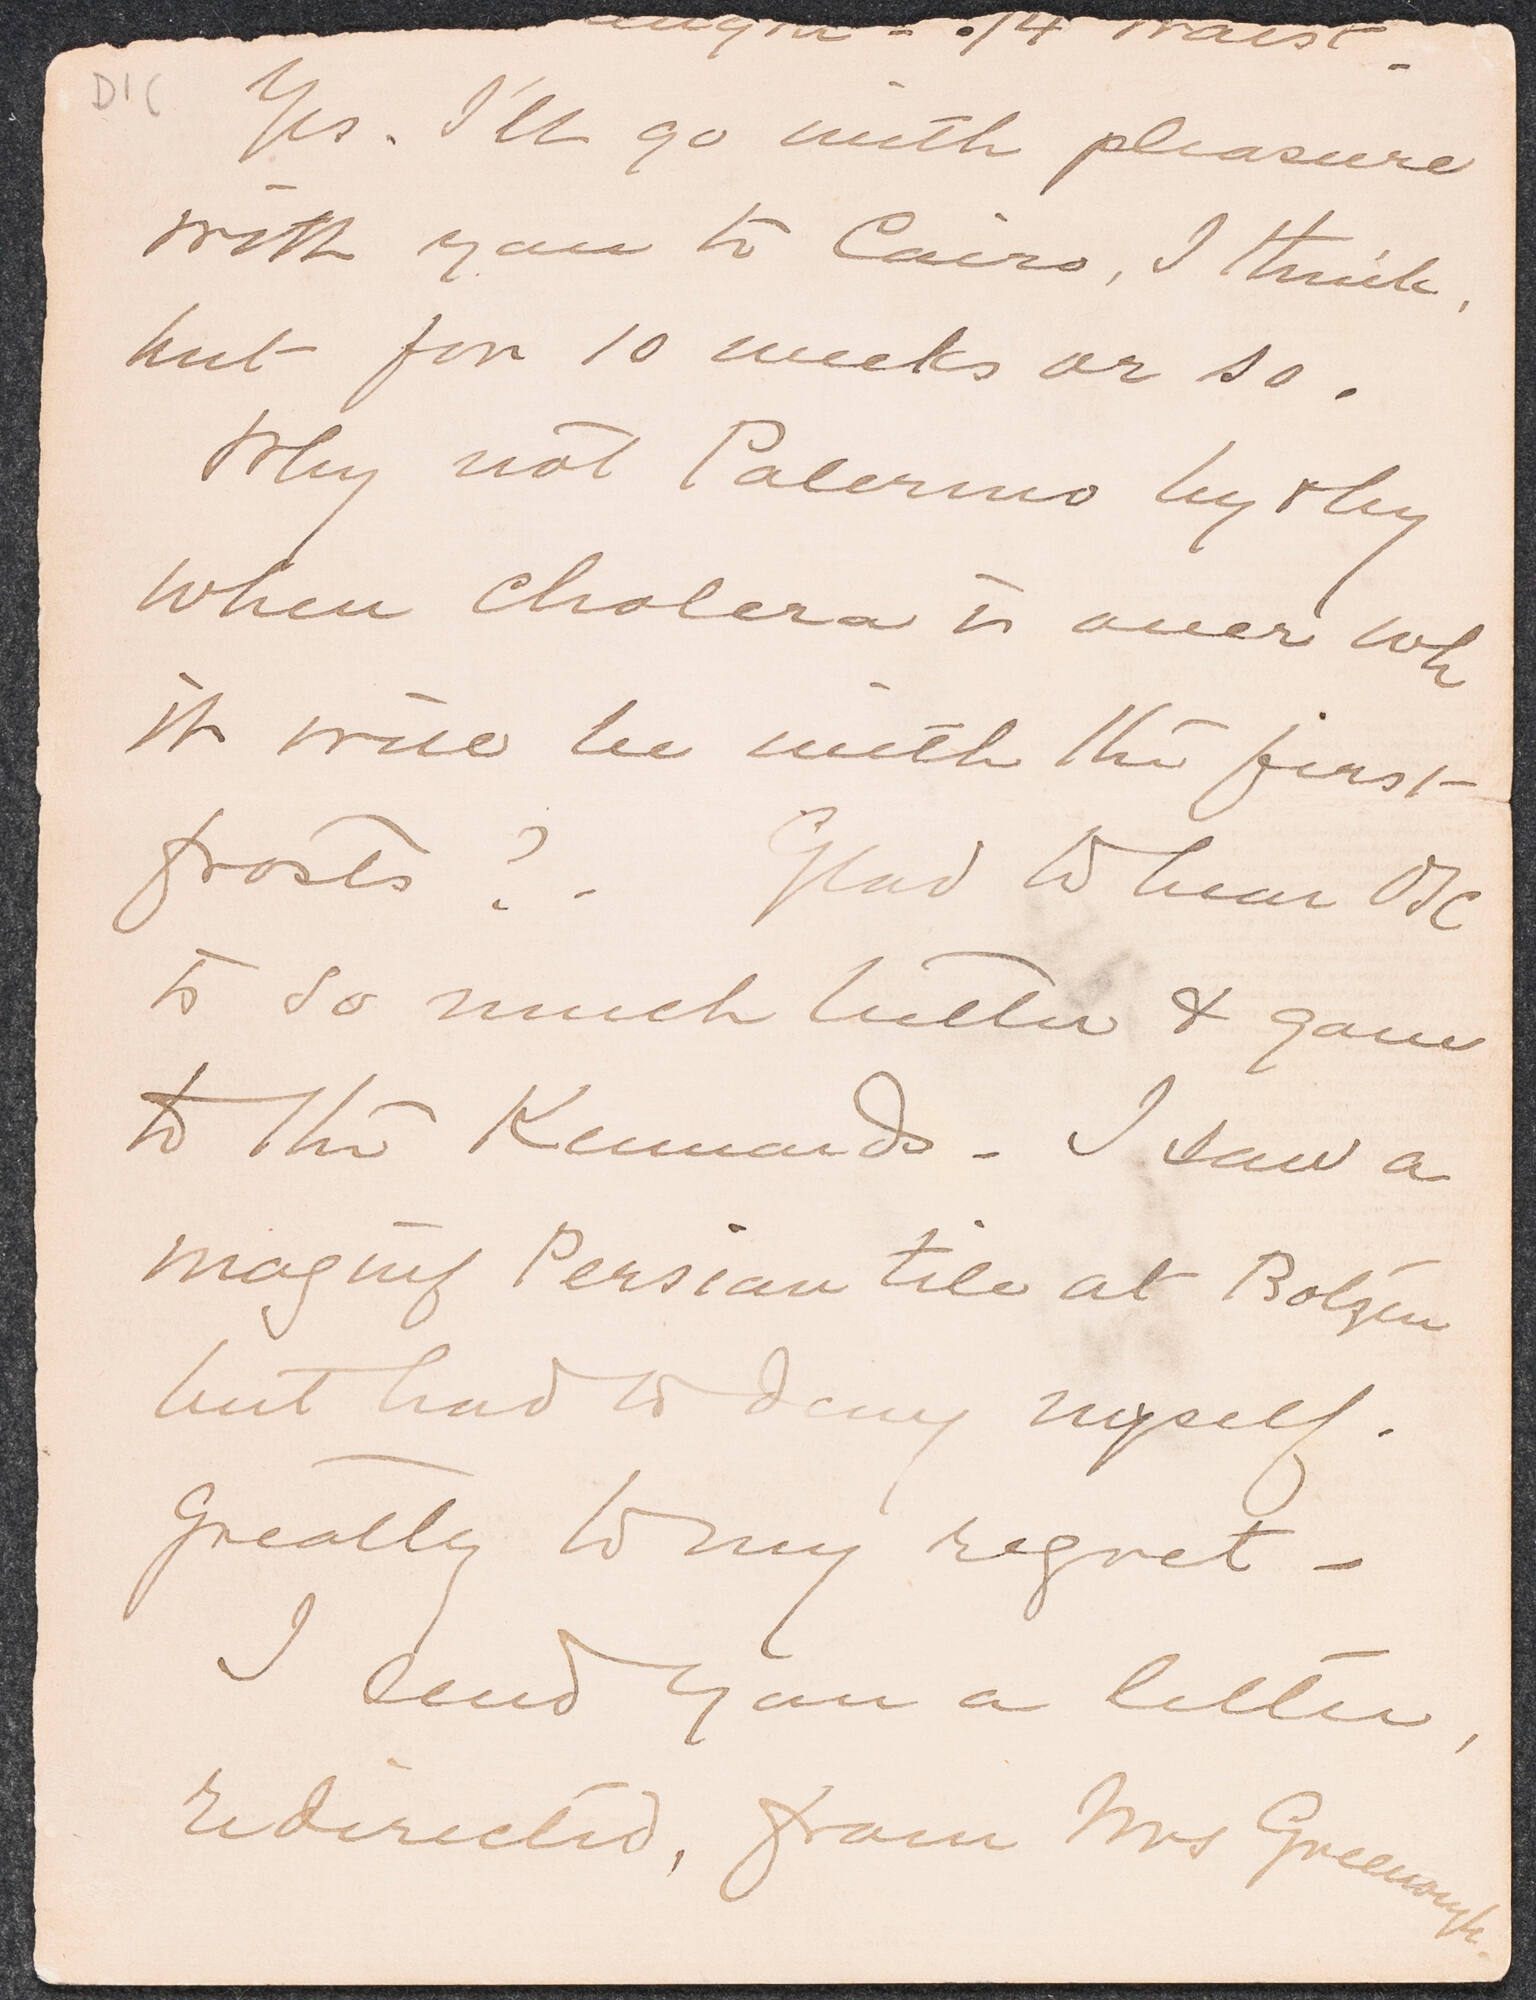 D1C
Yes. I'll go with pleasure
with you to Cairo, I think,
but for 10 weeks or so.
Why not Palermo by & by
when cholera is over wh
it will be with the first
frosts?. Glad to hear
is so much better & gone
to the Kennards - I saw a
magnif Persian tile at Botzen
but had to deny myself.
Greatly to my regret -
I send you a letter,
redirected, from Mrs Greenough.